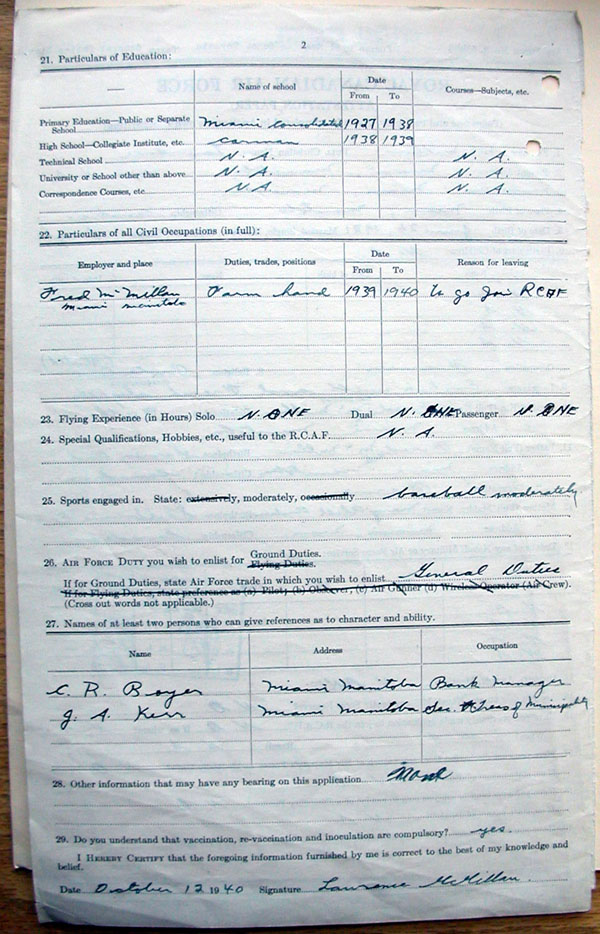 2
21. Particulars of Education:
Name of school Date From To Courses—Subjects, etc.
Primary Education—Public or Separate School Miami Consolidated 1927 1938
High School—Collegiate Institute, etc. Carman 1938 1939
Technical School N. A. N. A.
University or School other than above N. A. N. A.
Correspondence Courses, etc. N. A. N. A.
22. Particulars of all Civil Occupations (in full):
Employer and place Duties, trades, positions Date From To Reason for leaving
Fred McMillan Farm hand 1939 1940 to go join RCAF
Miami Manitoba
23. Flying Experience (in Hours) Solo N. ONE Dual N. ONE Passenger N. ONE
24. Special Qualifications, Hobbies, etc., useful to the R.C.A.F. N. A.
25. Sports engaged in. State: extensively, moderately, occasionally baseball moderately
26. AIR FORCE DUTY you wish to enlist for Ground Duties.
Flying Duties.
If for Ground Duties, state Air Force trade in which you wish to enlist General Duties
If for Flying Duties, state preference as (a) Pilot, (b) Observer, (c) Air Gunner (d) Wireless Operator (Air Crew).
(Cross out words not applicable.)
27. Names of at least two persons who can give references as to character and ability.
Name Address Occupation
C. R. Boyer Miami Manitoba Bank Manager
J. A. Kerr Miami Manitoba Sec. Treas of Municipality
28. Other information that may have any bearing on this application None
29. Do you understand that vaccination, re-vaccination and inoculation are compulsory? yes.
I HEREBY CERTIFY that the foregoing information furnished by me is correct to the best of my knowledge and
belief.
Date October 12 1940 Signature Lawrence McMillan